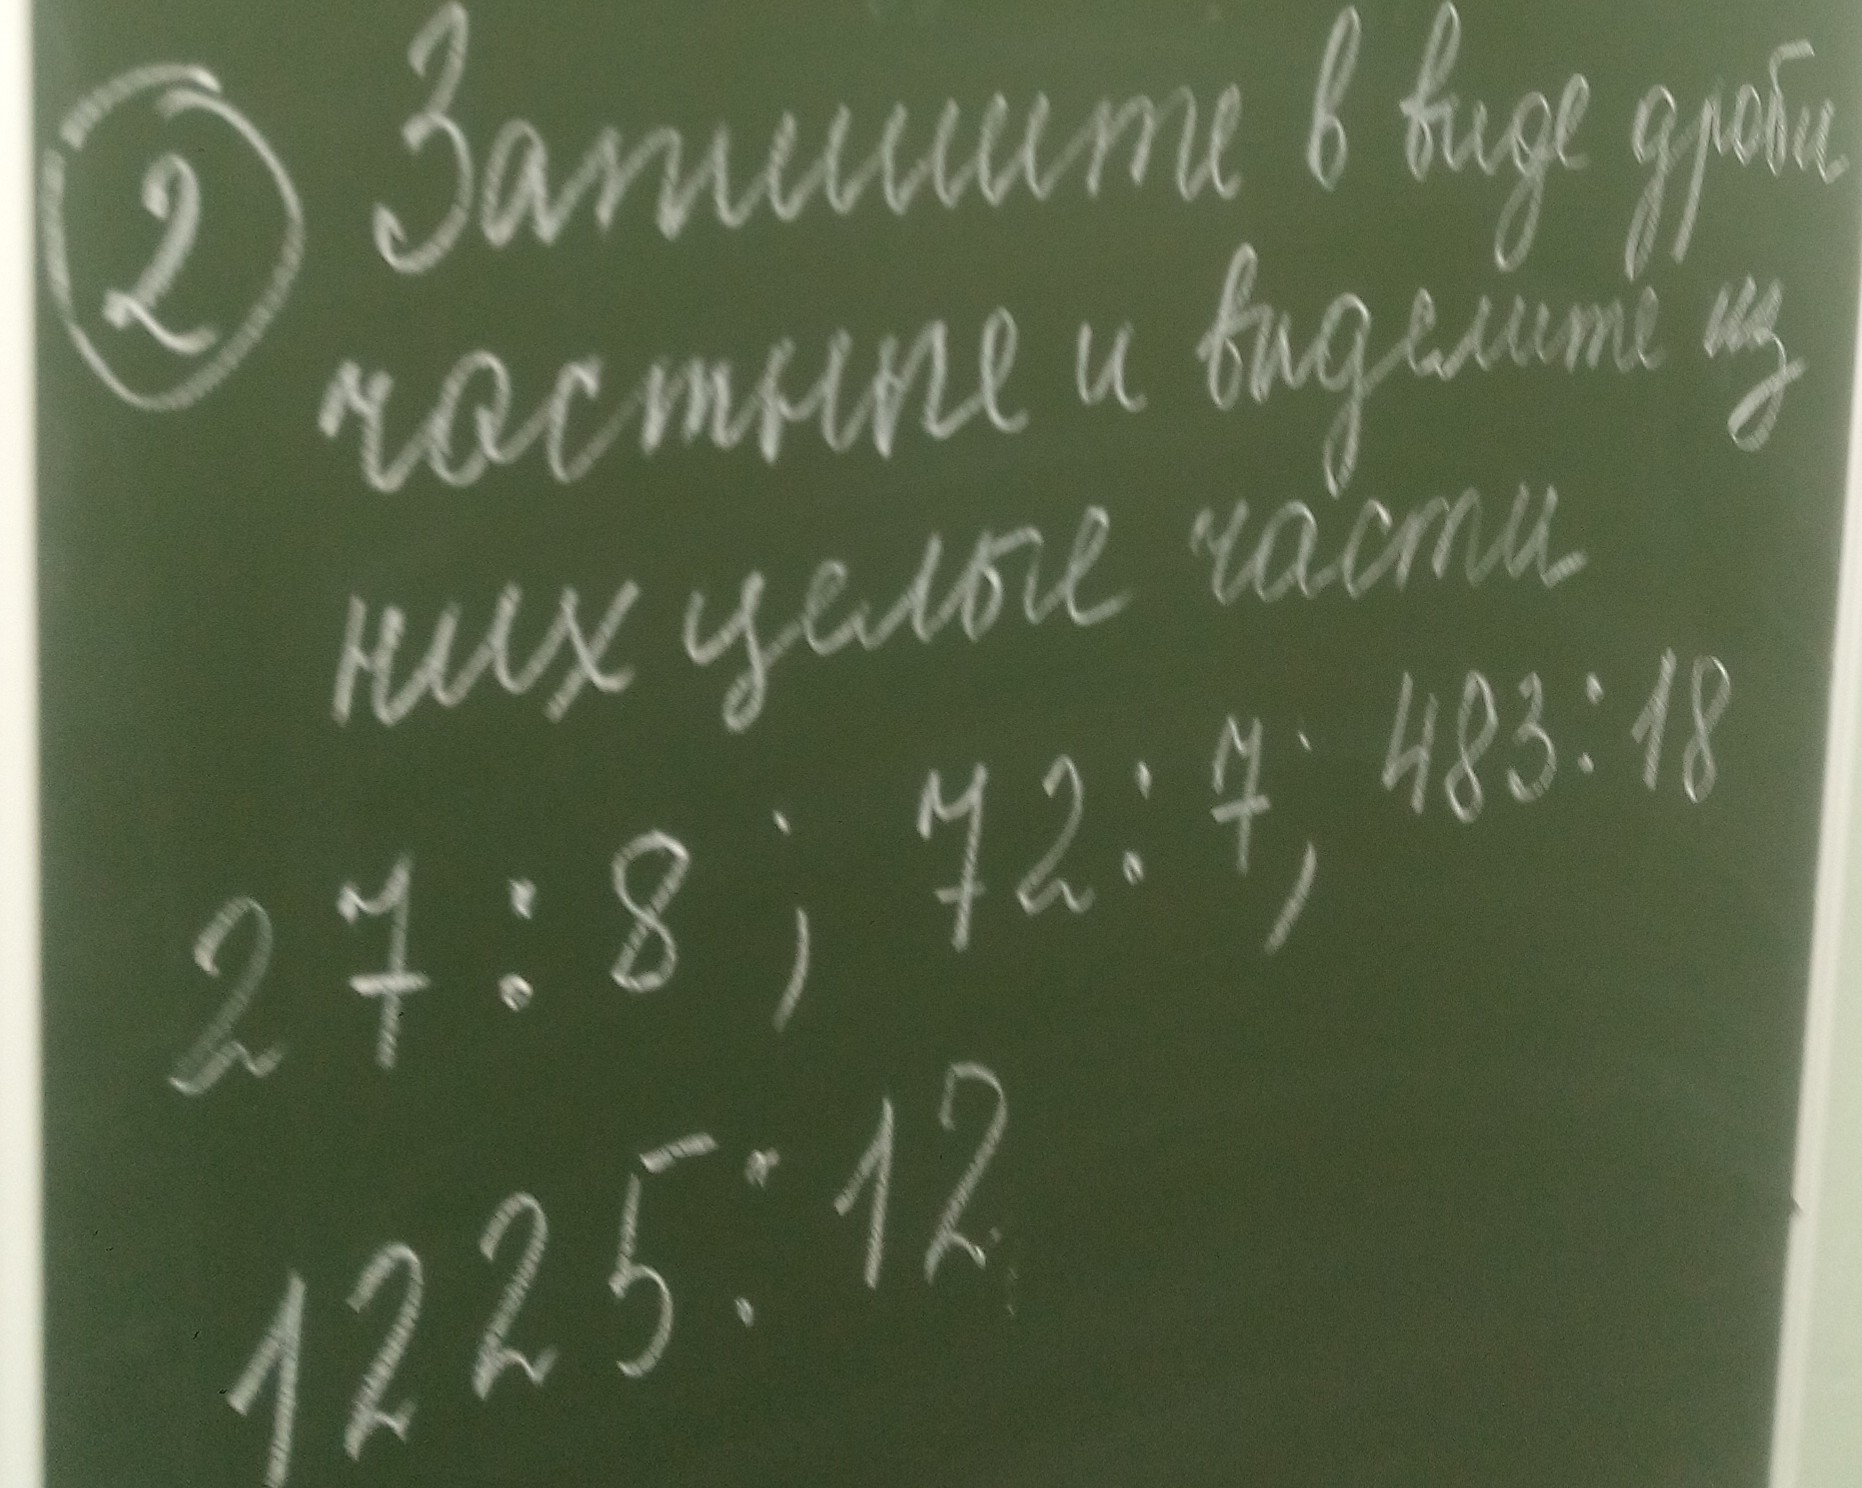 ② Запишите в виде дроби
частные и виделите из
них целые части
27:8; 72:7; 483:18
1225:12